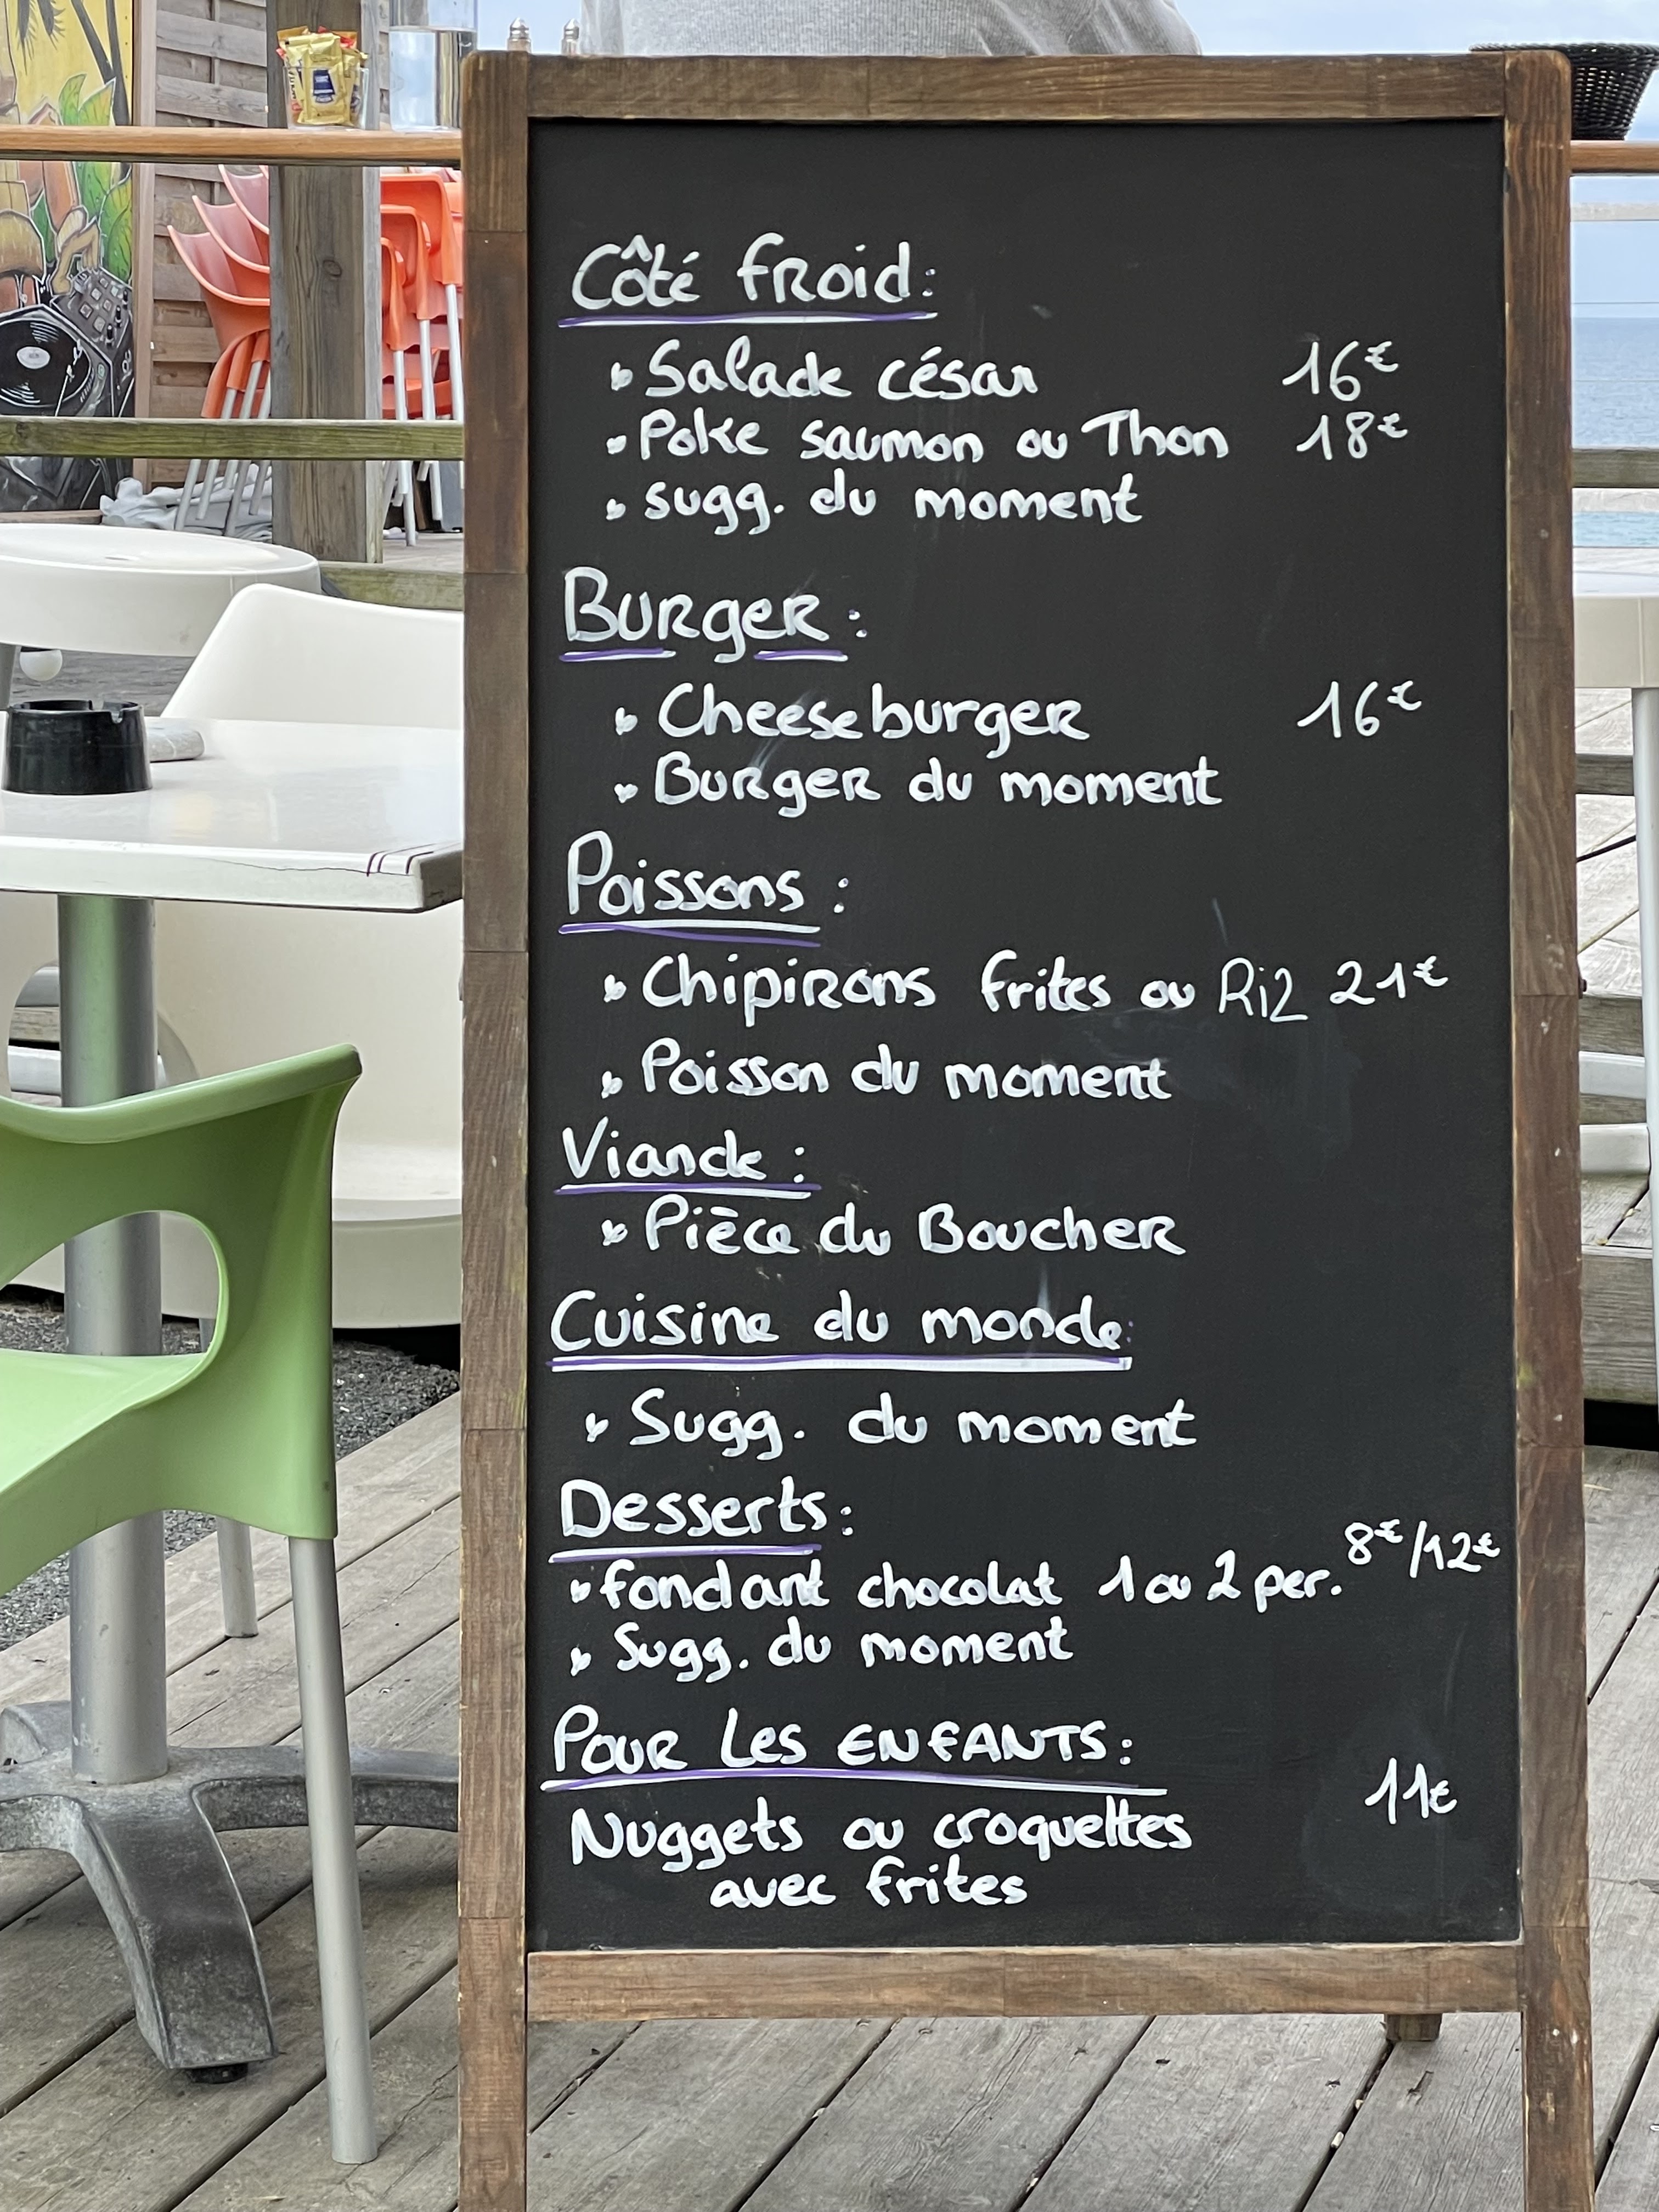 Côté froid:
Salade césar 16€
Poke saumon ou Thon 18€
sugg. du moment
Burger:
Cheeseburger 16€
Burger du moment
Poissons:
Chipirons frites ou Riz 21€
Poisson du moment
Viande:
Pièce du Boucher
Cuisine du monde:
Sugg. du moment
Desserts:
fondant chocolat 1 ou 2 per. 8€/12€
Sugg. du moment
POUR LES ENFANTS:
Nuggets ou croquettes 11€
avec frites